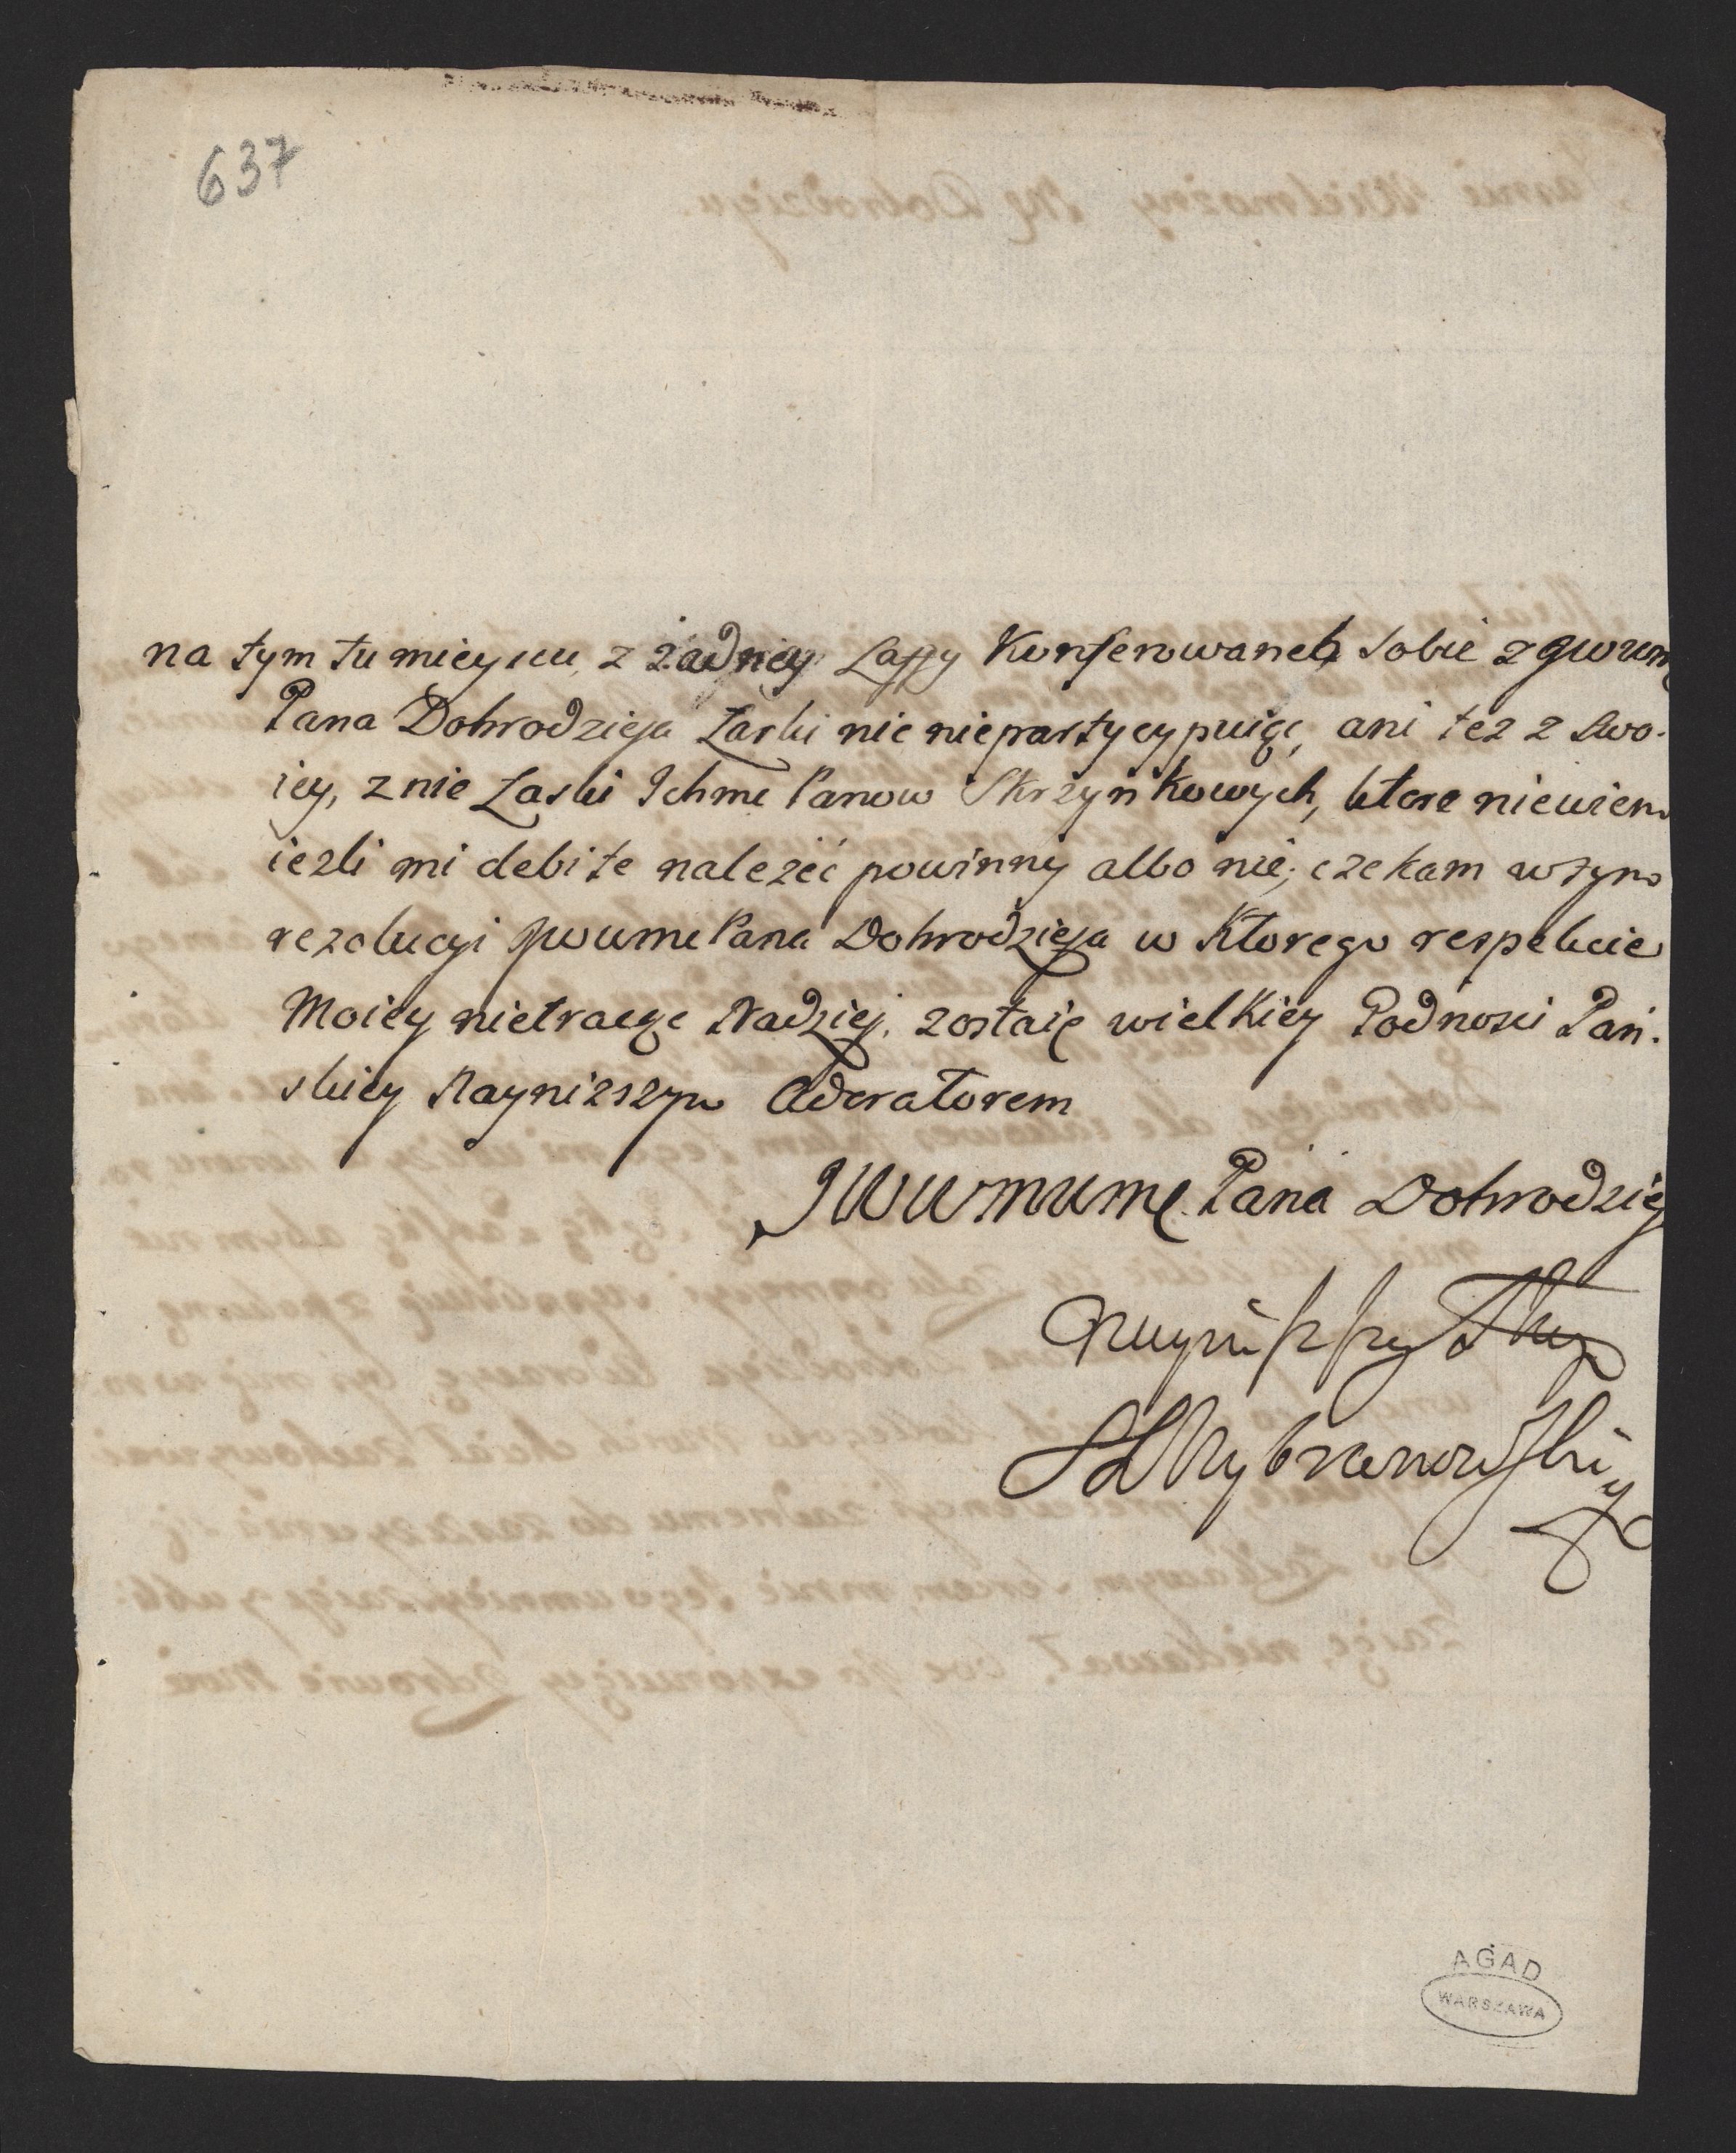 637
na tym tu mieyscu, z żadney Łassy Konferowaney Sobie z JWWM
Pana Dobrodzieja Łaski nic niepartycypuię, ani też z Swo-
iey, z nie Łaski Ichmć Panow Skrzyńkowych, ktore niewiem
iezli mi debite należeć powinny albo nie; czekam w tym
rezolucyi JWWMć Pana Dobrodzieja w Ktorego respekcie
Moiey nietracąc Nadziej. zostaię wielkiey Godnosci Pań-
skiey Nayniższym Adoratorem
JWWMMMć Pana Dobrodziej
Nayniższy Sługa
Wybranowski
AGAD
WARSZAWA